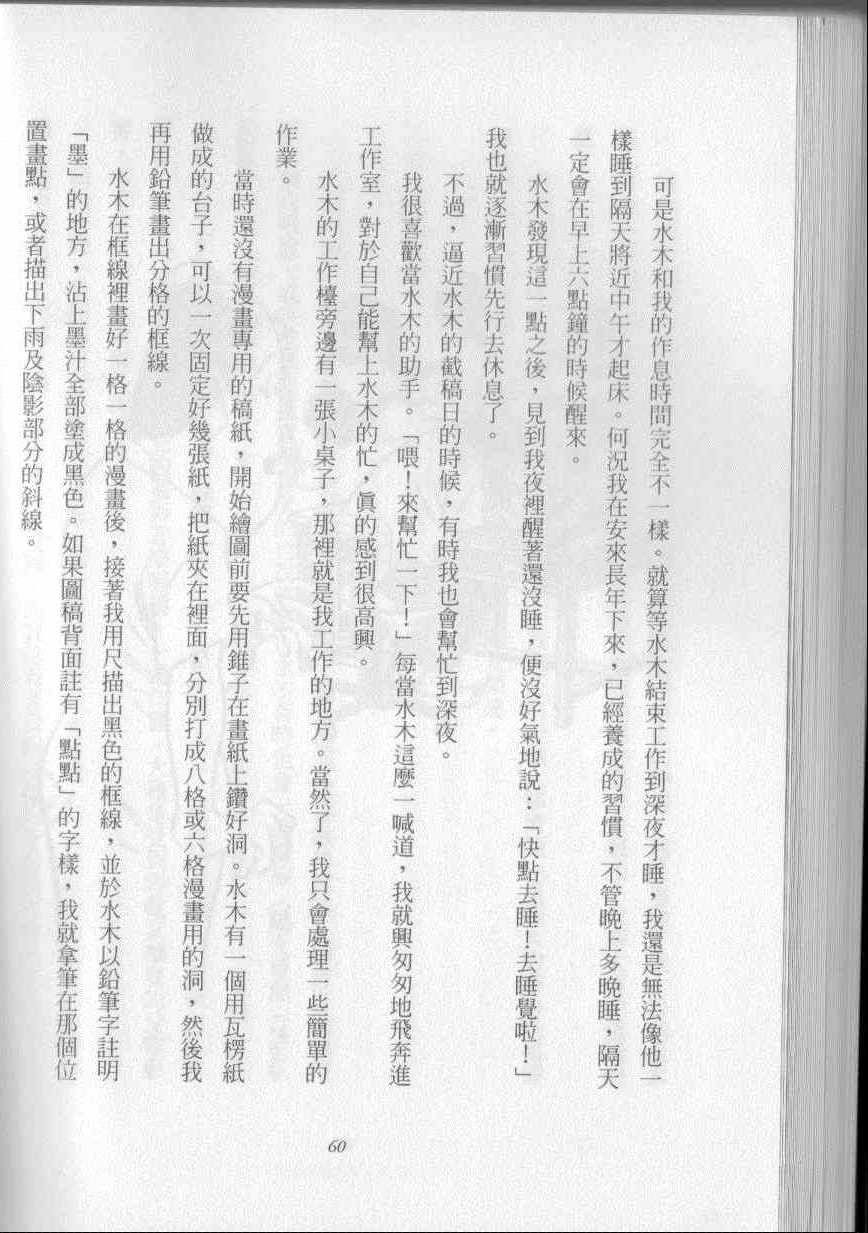 可是水木和我的作息時間完全不一樣。就算等水木結束工作到深夜才睡，我還是無法像他一
樣睡到隔天將近中午才起床。何況我在安來長年下來，已經養成的習慣，不管晚上多晚睡，隔天
一定會在早上六點鐘的時候醒來。
水木發現這一點之後，見到我夜裡醒著還沒睡，便沒好氣地說：「快點去睡！去睡覺啦！」
我也就逐漸習慣先行去休息了。
不過，逼近水木的截稿日的時候，有時我也會幫忙到深夜。
我很喜歡當水木的助手。「喂！來幫忙一下！」每當水木這麼一喊道，我就興匆匆地飛奔進
工作室，對於自己能幫上水木的忙，真的感到很高興。
水木的工作檯旁邊有一張小桌子，那裡就是我工作的地方。當然了，我只會處理一些簡單的
作業。
當時還沒有漫畫專用的稿紙，開始繪圖前要先用錐子在畫紙上鑽好洞。水木有一個用瓦楞紙
做成的台子，可以一次固定好幾張紙，把紙夾在裡面，分別打成八格或六格漫畫用的洞，然後我
再用鉛筆畫出分格的框線。
水木在框線裡畫好一格一格的漫畫後，接著我用尺描出黑色的框線，並於水木以鉛筆字註明
「墨」的地方，沾上墨汁全部塗成黑色。如果圖稿背面註有「點點」的字樣，我就拿筆在那個位
置畫點，或者描出下雨及陰影部分的斜線。
60